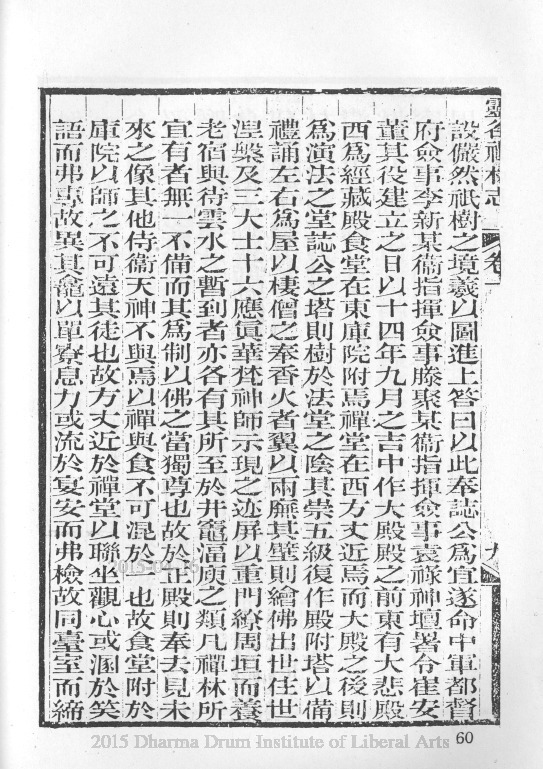 靈谷禪林志 卷 九
設儼然祇樹之境羲以圖進上答曰以此奉誌公為宜遂命中軍都督
府僉事李新某衞指揮僉事滕聚某衞指揮僉事袁祿神壇署令崔安
董其役建立之日以十四年九月之吉中作大殿殿之前東有大悲殿
西爲經藏殿食堂在東庫院附焉禪堂在西方丈近焉而大殿之後則
爲演法之堂誌公之塔則樹於法堂之陰其崇五級復作殿附塔以備
禮誦左右爲屋以棲僧之奉香火者翼以兩廡其壁則繪佛出世住世
涅槃及三大士十六應眞華梵神師示現之迹屏以重門繚周垣而養
老宿與待雲水之暫到者亦各有其所至於井竈湢庾之類凡禪林所
宜有者無一不備而其爲制以佛之當獨尊也故於正殿則奉去見未
來之像其他侍衞天神不與焉以禪與食不可混於一也故食堂附於
庫院以師之不可遠其徒也故方丈近於禪堂以聯坐觀心或溷於笑
語而弗專故異其龕以單寮息力或流於宴安而弗檢故同臺室而締
2015 Dharma Drum Institute of Liberal Arts 60